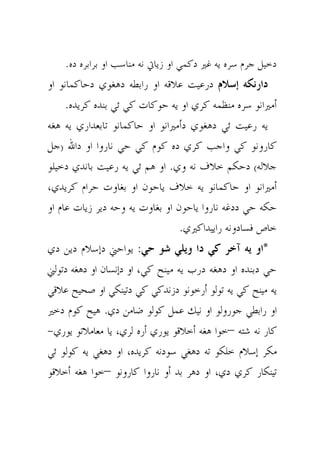 دخيل جرم سره يه غير دكمي او زياتي نه مناسب او برابره ده.
دارنکه إسلام درعيت علاقه او رابطه دهغوي دحاكمانو او
أميرانو سره منظمه كري او يه حوكات كي ئي بنده كريده.
يه رعيت ئي دهغوي دأميرانو او حاكمانو تابعداري يه هغه
كارونو كي واجب كري ده كوم كي حي ناروا او دالله (جل
جلاله) دحكم خلاف نه وي. او هم ئي يه رعيت باندي دخيلو
أميرانو او حاكمانو يه خلاف ياحون او بغاوت حرام كريدي،
حكه حي ددغه ناروا ياحون او بغاوت يه وحه دير زيات عام او
خاص فسادونه راييداكيري.
*او يه آخر كي دا ويلي شو حي: يواحيني دإسلام دين دي
حي دبنده او دهغه درب يه مينح كي، او دإنسان او دهغه دتوليني
يه مينح كي يه تولو أرخونو دزندكي كي دتينكي او صحيح علاقي
او رابطي جورولو او نيك عمل كولو ضامن دي. هيح كوم دخير
كار نه شته –خوا هغه أخلاقو يوري أره لري، يا معاملاتو يوري-
مكر إسلام خلكو ته دهغي سودنه كريده، او دهغي يه كولو ئي
تينكار كري دي، او دهر بد أو ناروا كارونو –خوا هغه أخلاقو